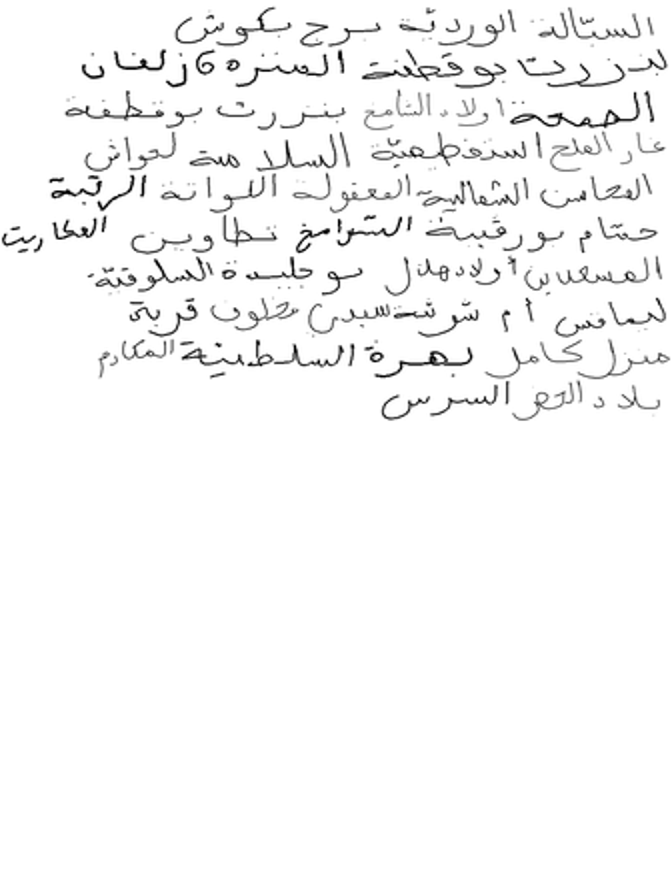 الستالة الوردية برج بكوش
بنزرت بوقطنة المنزه 6 زلفان
الجمعة اولاد الشامخ بنزرت بوقطفة
غار الملح السلامة لعواش
المحاسن الشمالية المعفولة اللواتة الرتبة
حشام بورقيبة الشوامخ تطاوين العكاريت
المسعدين أولاد هلال بوجليدة السلوقية
ليمافس أم شوشة سيدي مخلوف قربة
منزل كامل بهرة السلطنية المكارم
بلاد الحضر السرس